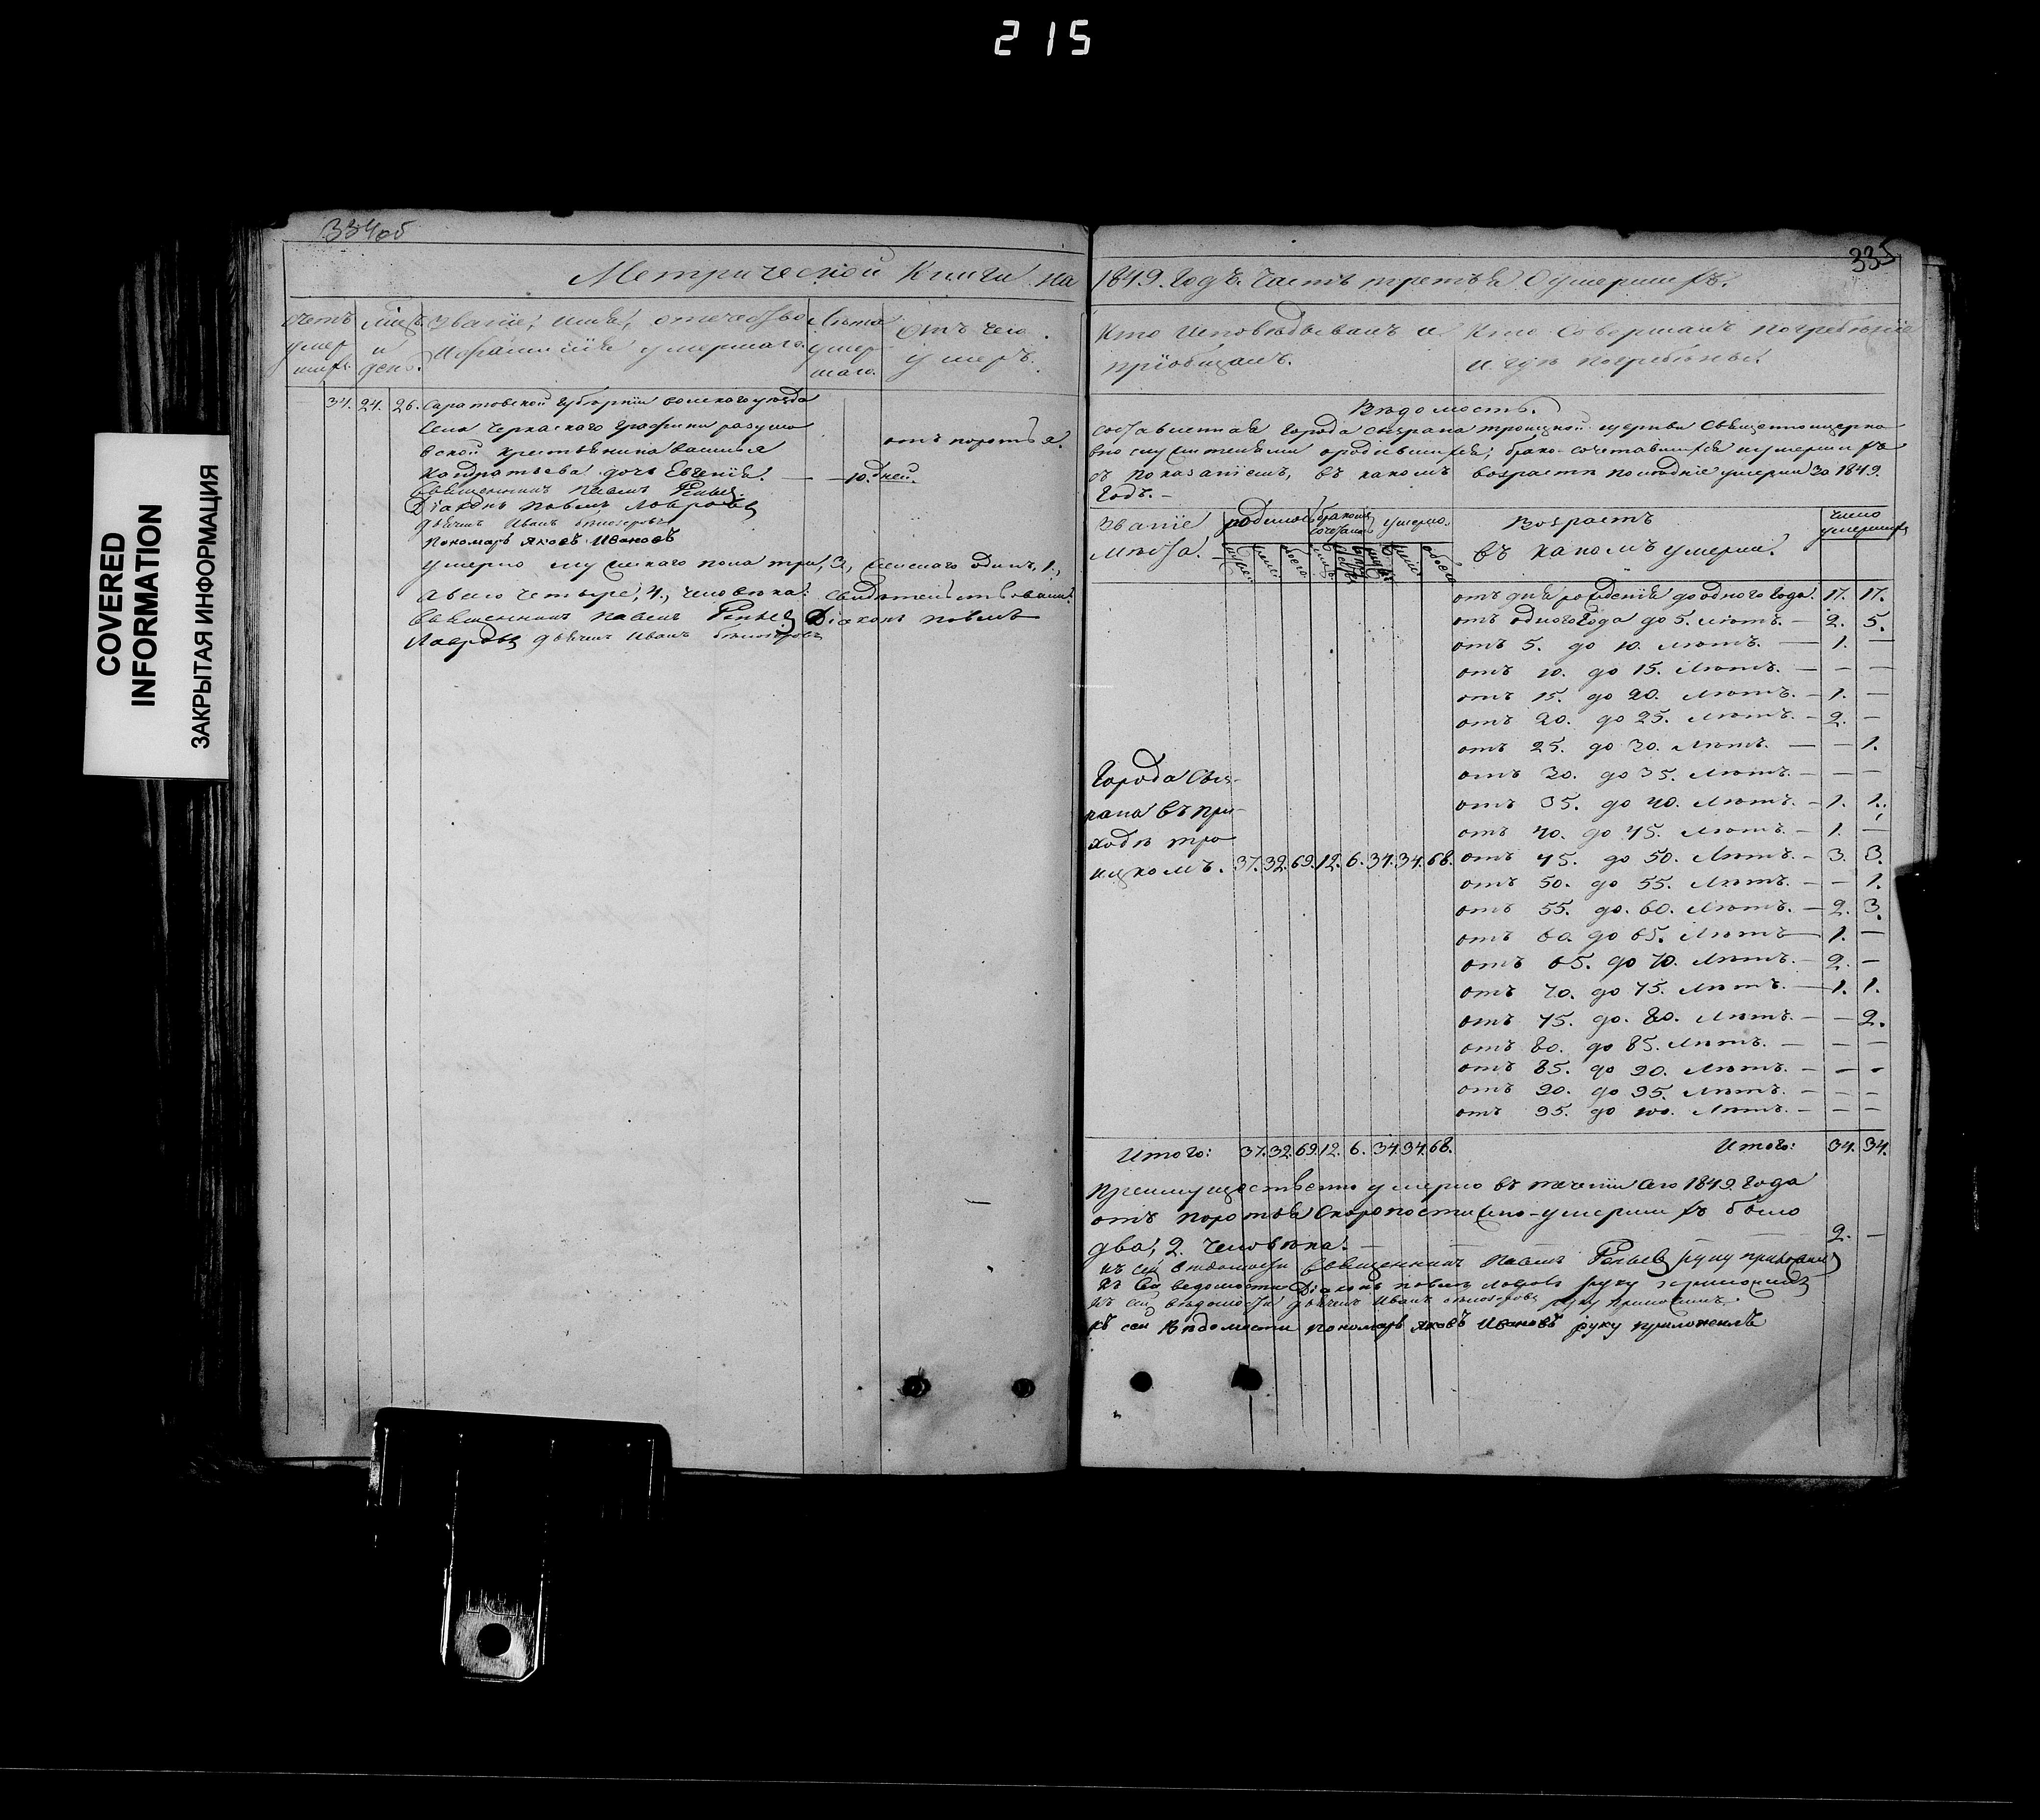 215
COVERED
INFORMATION
ЗАКРЫТАЯ ИНФОРМАЦИЯ
334об
335
Метрической Книги на 1849. Годъ. Часть третья О умершихъ.
Званіе, имя, отечество
и фамилія умершаго.
Лѣта
умер
шаго.
Отъ чего
умеръ.
Кто Исповѣдывалъ и
пріобщалъ.
Кто Совершалъ погребеніе
и гдѣ погребены.
34. 24. 26. Саратовской Губерніи волскаго уѣзда
Села Черкаскаго Графини разумо
вской крестьянина Василья
Кандратьева дочь Евгенія. — 10. дней. отъ поротья.
Священникъ Павелъ
Діаконъ Павелъ Лавровъ
Дьячекъ Иванъ
Пономарь Яковъ Ивановъ
умерло мужскаго пола три, 3, женскаго одинъ, 1,
а всего четыре, 4, человѣка: свидѣтельствовали:
Священникъ Павелъ Діаконъ Павелъ
Лавровъ дьячекъ Иванъ
Вѣдомость.
составленная Города Сызрана троицкой церкви Священноцерко
вно служителями о родившихся, брако-сочетавшихся и умершихъ
съ показаніемъ, въ какомъ возрастѣ послѣдніе умерли За 1849.
Годъ. —
Званіе
мѣста.
родилось
бракомъ
сочетано
умерло.
обоего
обоего
Возрастъ
въ какомъ умерли.
Число
умершихъ
отъ дня рожденія до одного Года. 17. 17.
отъ одного Года до 5. лѣтъ. — 2. 5.
отъ 5. до 10. лѣтъ. — 1. —
отъ 10. до 15. лѣтъ. — — —
отъ 15. до 20. лѣтъ. — 1. —
отъ 20. до 25. лѣтъ. — 2. —
отъ 25. до 30. лѣтъ. — — 1.
отъ 30. до 35. лѣтъ. — — —
отъ 35. до 40. лѣтъ. — 1. 1.
отъ 40. до 45. лѣтъ. — 1. —
отъ 45. до 50. лѣтъ. — 3. 3.
отъ 50. до 55. лѣтъ. — — 1.
отъ 55. до. 60. лѣтъ. — 2. 3.
отъ 60. до 65. лѣтъ — 1. —
отъ 65. до 70. лѣтъ. — 2. —
отъ 70. до 75. лѣтъ. — 1. 1.
отъ 75. до. 80. лѣтъ. — — 2.
отъ 80. до 85. лѣтъ. — — —
отъ 85. до 90. лѣтъ. — — —
отъ 90. до 95. лѣтъ. — — —
отъ 95. до 100. лѣтъ. — — —
Города Сыз-
рана въ при-
ходѣ тро
ицкомъ. 37. 32. 69. 12. 6. 34. 34. 68.
Итого: 37. 32. 69. 12. 6. 34. 34. 68.
Итого: 34. 34.
Преимущественно умерло въ теченіи сего 1849. Года
отъ поротья Скоропостижно-умершихъ было
два, 2. человѣка. — 2. —
къ сей вѣдомости Священникъ Павелъ руку приложилъ
къ сей ведомости Діаконъ павелъ Лавровъ руку приложилъ
къ сей вѣдомости дьячекъ Иванъ руку приложилъ
къ сей Вѣдомости пономарь Яковъ Ивановъ руку приложилъ